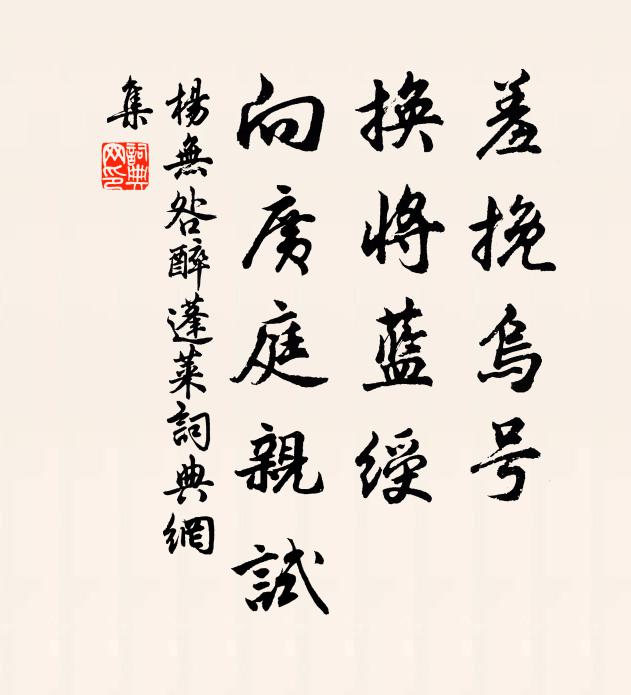 羞挽烏号
換將藍綬
向廣庭親試
楊無咎醉蓬萊詞典網
集
詞典
网印